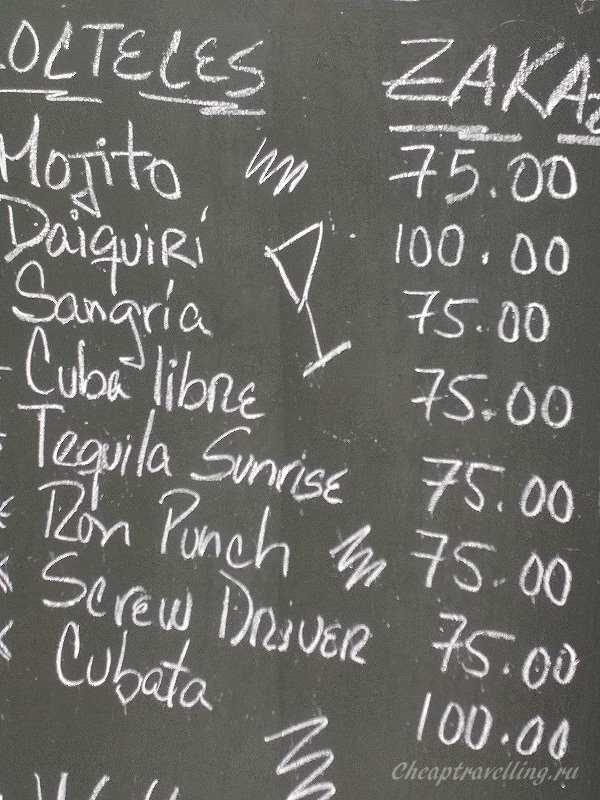 COCTELES ZAKAZ
Mojito 75.00
Daiquiri 100.00
Sangria 75.00
Cuba libre 75.00
Tequila Sunrise 75.00
Ron Punch 75.00
Screw Driver 75.00
Cubata 100.00
Cheaptravelling.ru